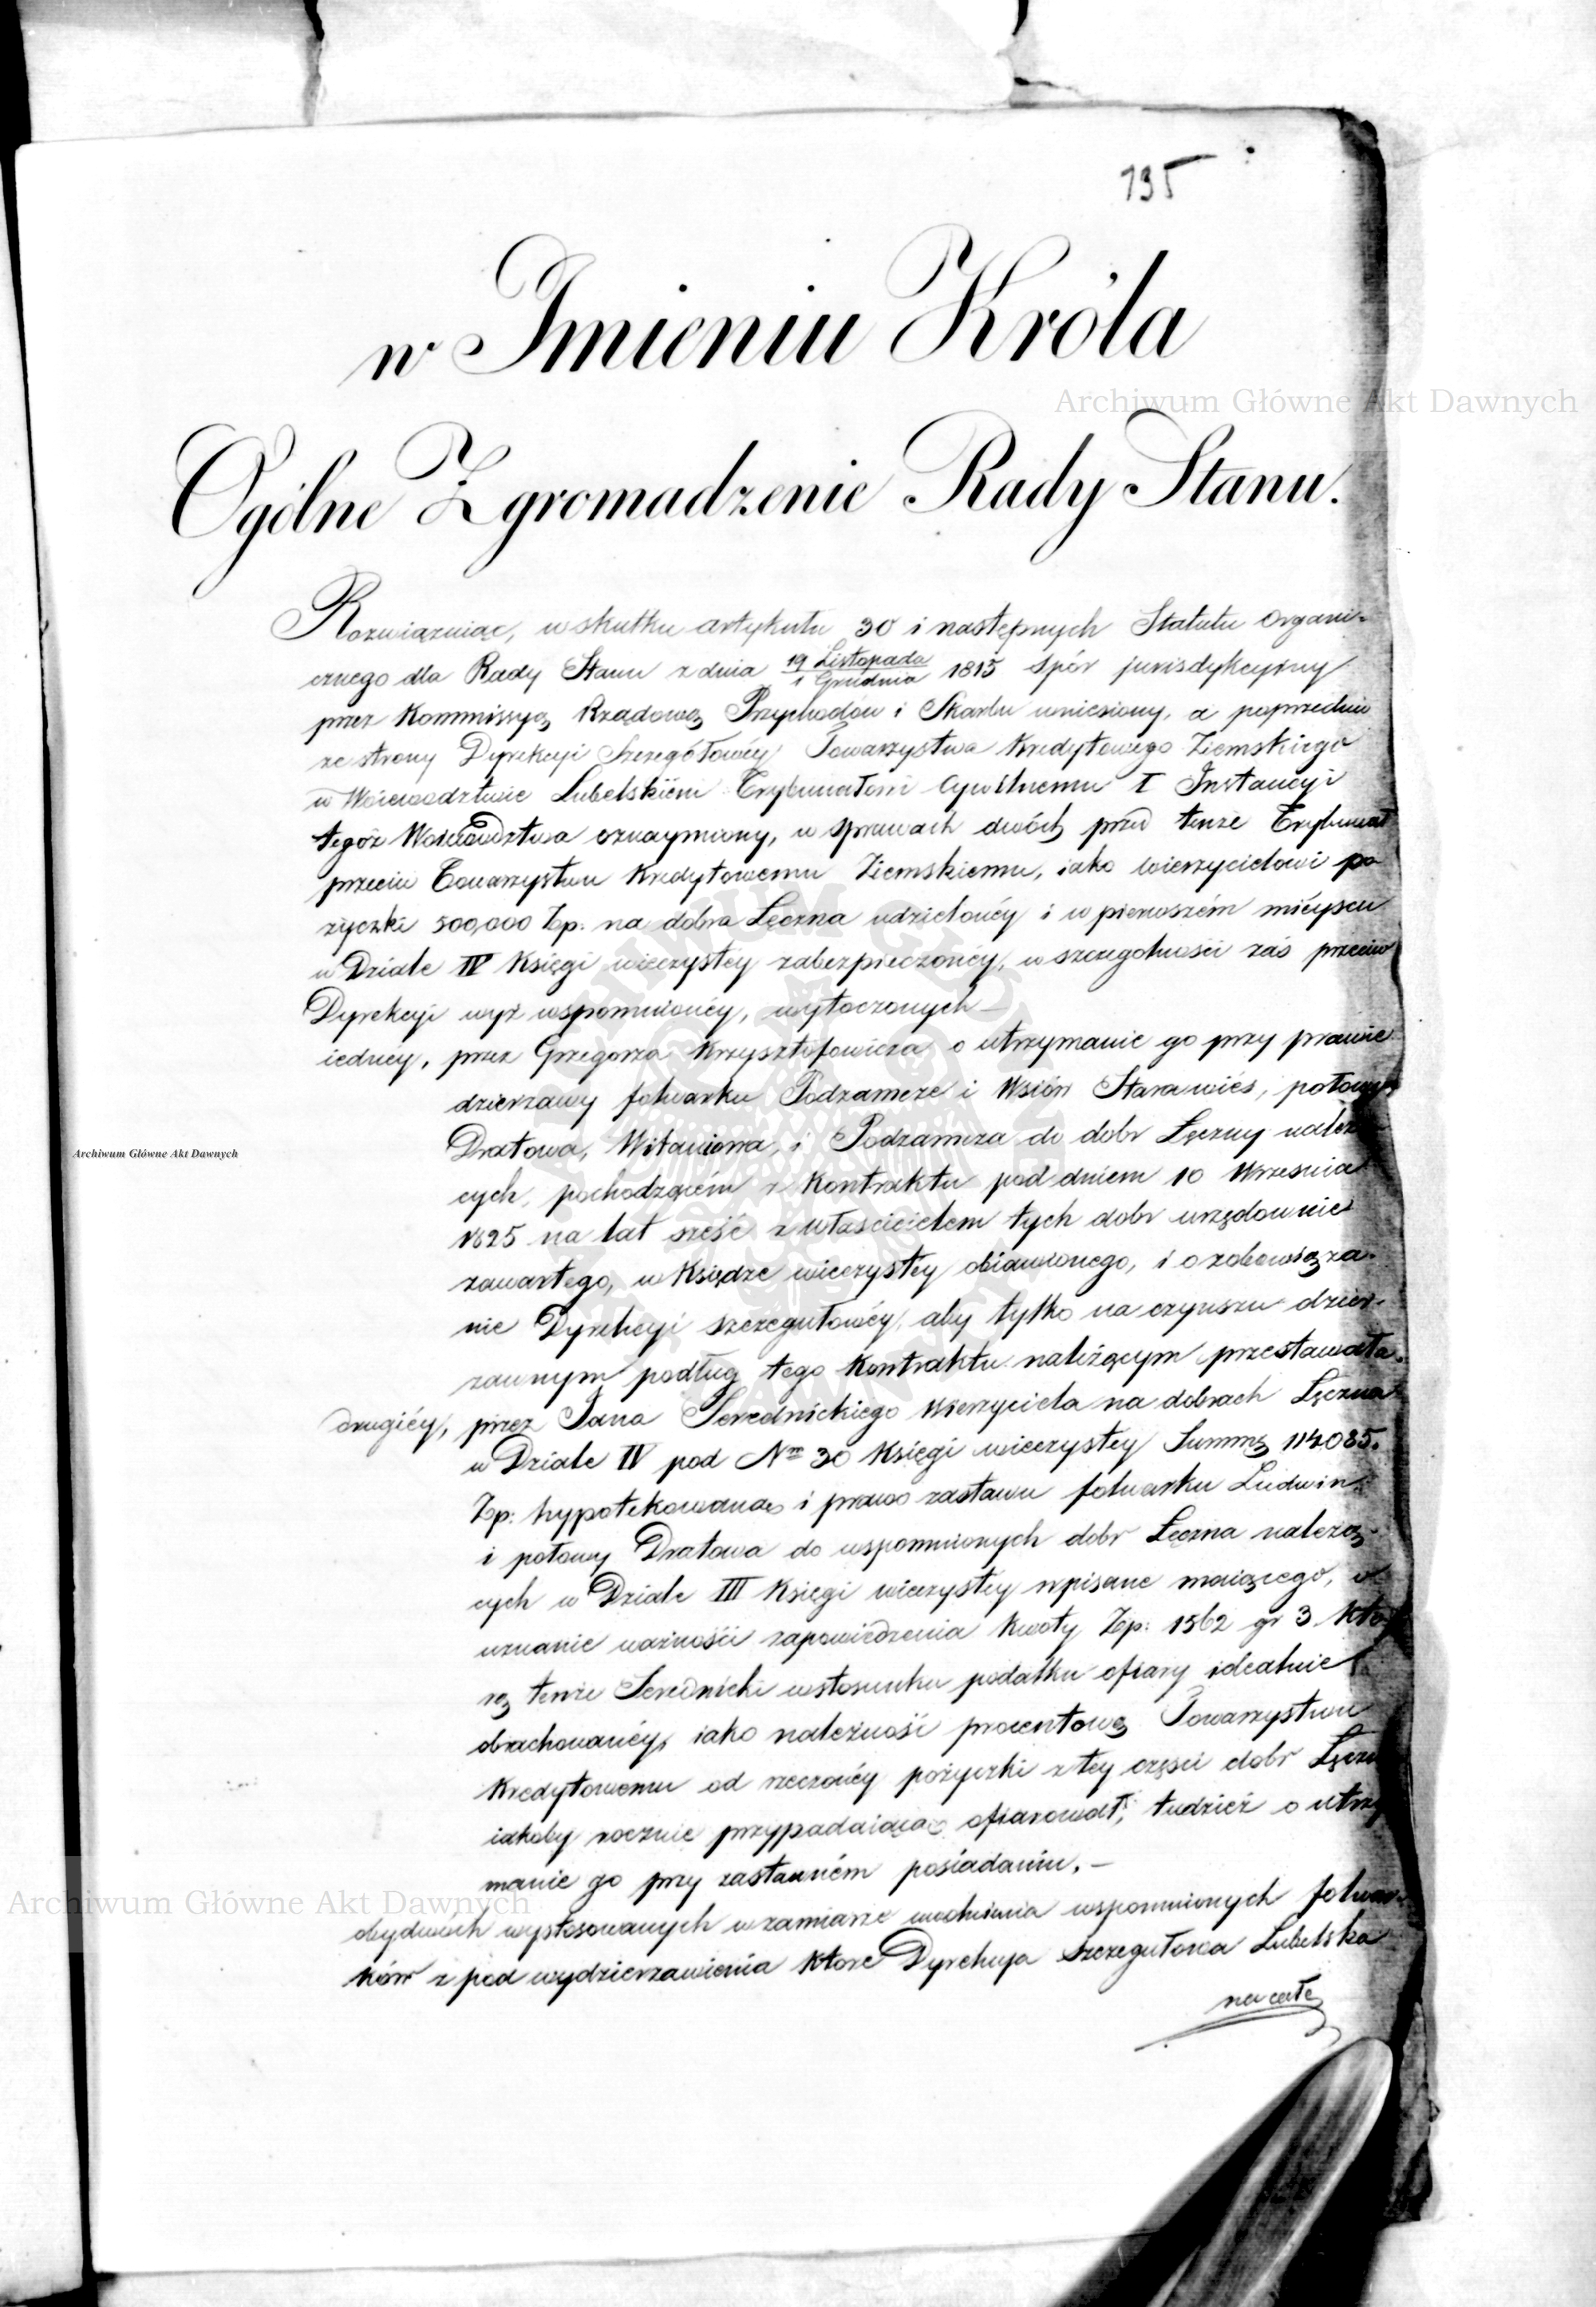 195
w Imieniu Króla
Archiwum Główne Akt Dawnych
Ogólne Zgromadzenie Rady Stanu.
Rozwiązuiąc, w skutku artykułu 30 i następnych Statutu Organi-
cznego dla Rady Stanu z dnia 19 Listopada / 1 Grudnia 1815 spór jurisdykcyjny
przez Kommissyą Rządową Przychodów i Skarbu wniesiony, a poprzednio
ze strony Dyrekcyi Szczegółowéy Towarzystwa Kredytowego Ziemskiego
w Woiewodztwie Lubelskiém Trybunałowi Cywilnemu I Instancyi
tegóż Woiewodztwa oznaymiony, w sprawach dwóch przed tenże Trybunał
przeciw Towarzystwu Kredytowemu Ziemskiemu, iako wierzycielowi po-
życzki 500,000 Zp. na dobra Łęczna udzielonéy i w pierwszém mieyscu
w Dziale IV Księgi wieczystéy zabezpieczonéy, w szczegolności zaś przeciw
Dyrekcyi wyż wspomnionéy, wytoczonych —
iednéy, przez Grzegorza Krzysztofowicza o utrzymanie go przy prawie
dzierzawy folwarku Podzamcze i Wsiów Starawieś, połowy
Dratowa, Witaniowa, i Podzamcza do dobr Łęczny należą-
cych, pochodzącém z Kontraktu pod dniem 10 Września
1825 na lat sześć z właścicielem tych dobr urzędownie
zawartego, w Księdze wieczystéy obiawionego, i o zobowiąza-
nie Dyrekcyi szczegułowéy, aby tylko na czynszu dzier-
zawnym podług tego Kontraktu należącym przestawała.
drugiéy, przez Jana Serednickiego Wierzyciela na dobrach Łęczna
w Dziale IV pod Nm 30 Księgi wieczystéy Summą 114085.
Zp: hypotekowaną i prawo zastawu folwarku Ludwin
i połowy Dratowa do wspomnionych dobr Łęczna należą-
cych w Dziale III Księgi wieczystéy wpisane maiącego, o
uznanie ważności zapowiedzenia kwoty Zp: 1562 gr 3. któ-
rą tenże Serednicki w stosunku podatku ofiary idealnie
obrachowanéy, iako należność procentową Towarzystwu
Kredytowemu od rzeczonéy pożyczki z téy części dobr Łęczn
iakoby rocznie przypadaiącą ofiarował; tudzież o utrzy-
manie go przy zastawném posiadaniu. —
obydwóch wystosowanych w zamiarze uwolnienia wspomnionych folwar-
ków z pod wydzierzawienia które Dyrekcya Szczegułowa Lubelska
na całe
Archiwum Główne Akt Dawnych
Archiwum Główne Akt Dawnych